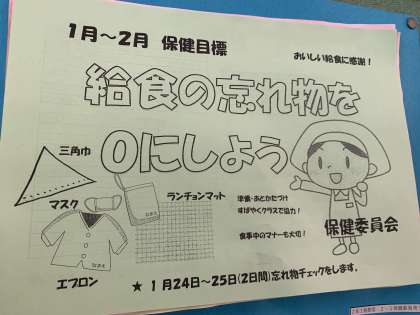 1月～2月 保健目標
おいしい給食に感謝！
給食の忘れ物を
0にしよう
三角巾
マスク
ランチョンマット
エプロン
準備・あとかたづけ
すばやくクラスで協力！
食事中のマナーも大切！
保健委員会
★ 1月24日～25日(2日間)忘れ物チェックをします。